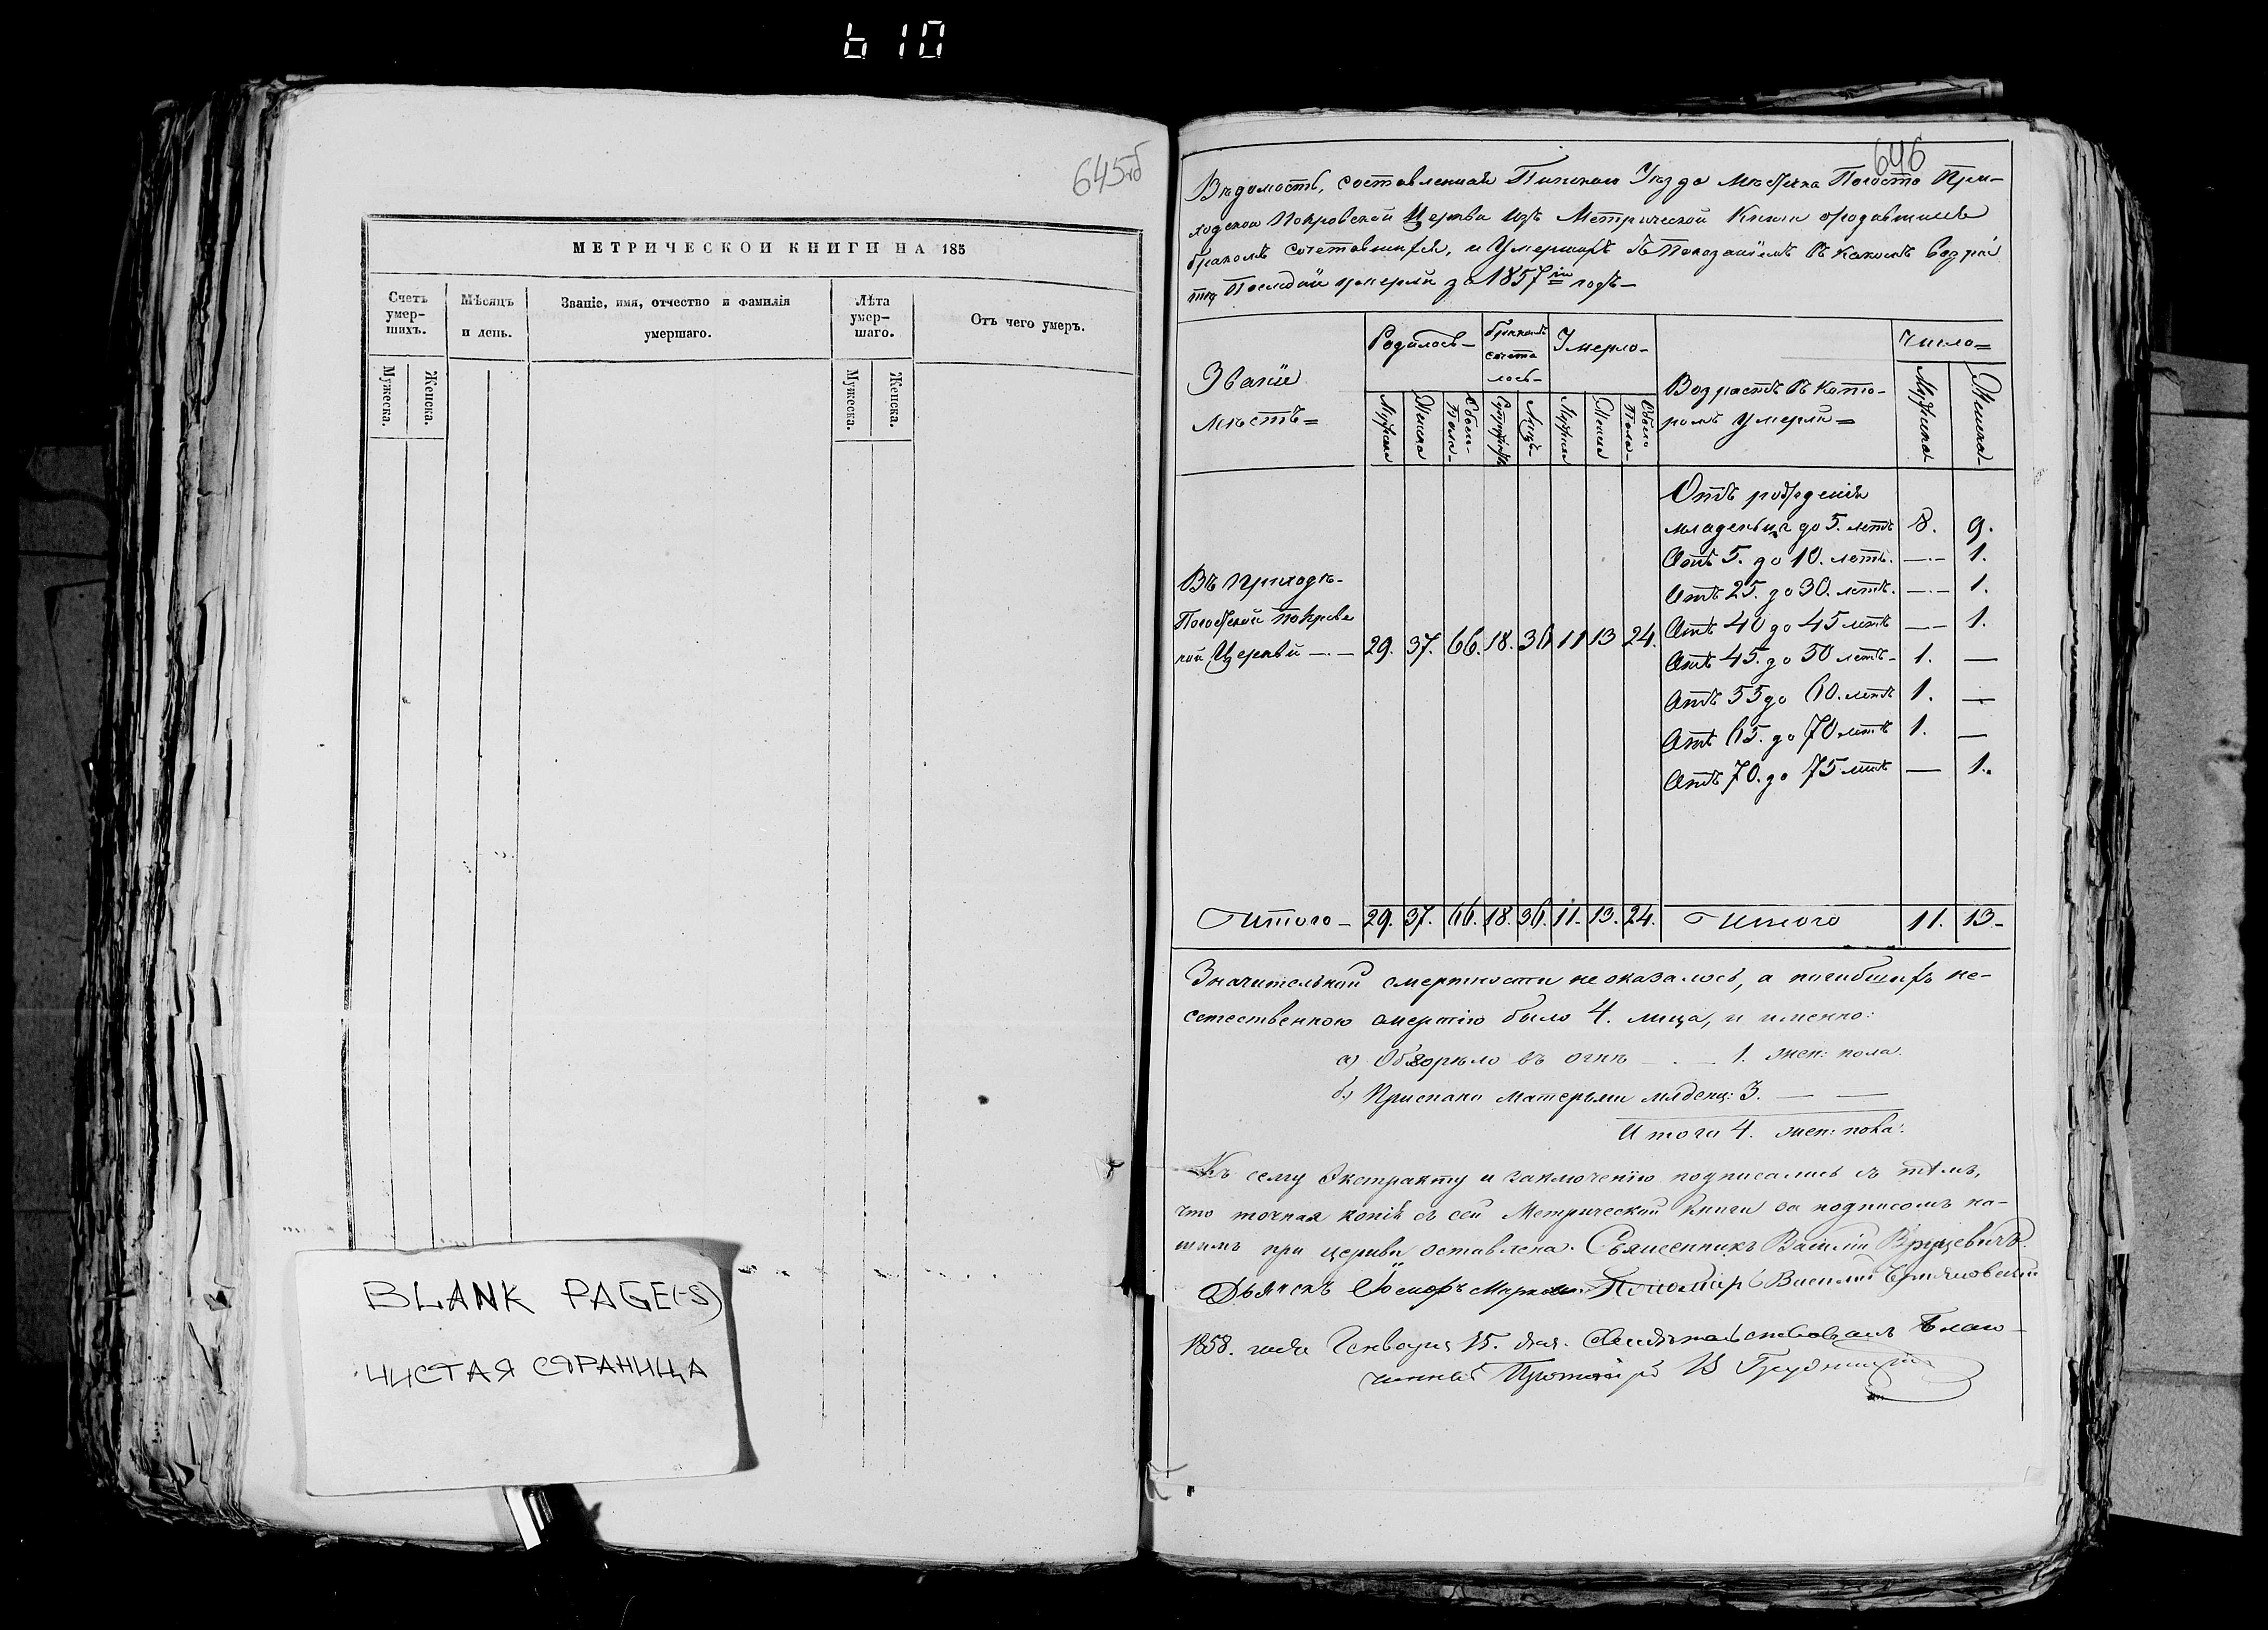 610
645об
МЕТРИЧЕСКОЙ КНИГИ НА 185
Счетъ умер-шихъ.
Мужеска.
Женска.
Мѣсяцъ и день.
Званіе, имя, отчество и фамилія умершаго.
Лѣта умер-шаго.
Мужеска.
Женска.
Отъ чего умеръ.
BLANK PAGE(-S)
ЧИСТАЯ СТРАНИЦА
646
Вѣдомость, составленная Пинскаго Уѣзда мѣстечка Погоста При-
ходской Покровской Церкви изъ Метрической Книги о родившихся
бракомъ сочетавшихся, и Умершихъ съ Показаніемъ въ какомъ Возрас
тѣ Послѣдніи умерли за 1857й годъ
Званіе мѣстъ
Родилось
Мужска
Женска
Обоего Пола
бракомъ сочета лось
Супружствъ
Лицъ
Умерло
Мужска
Женска
Обоего Пола
Возрастъ въ кото-
ромъ Умерли
Число
Мужска
Женска
Отъ рожденія
младенца до 5. летъ 8. 9.
Отъ 5. до 10. летъ. — 1.
Отъ 25. до 30. летъ. — 1.
Отъ 40 до 45 летъ — 1.
Отъ 45. до 50 летъ 1. —
Отъ 55 до 60. летъ 1. —
Отъ 65. до 70 летъ 1. —
Отъ 70. до 75 летъ — 1.
Въ приходѣ
Погостской Покровс
кой Церкви — 29. 37. 66. 18. 36 11 13 24.
Итого 29. 37. 66. 18. 36. 11. 13. 24. Итого 11. 13
Значительной смертности не оказалось, а погибшихъ не-
естественною смертію было 4. лица, и именно:
а) Обгорѣло въ огнѣ — 1. жен: пола.
б) Приспано матерьми младенц: 3. — —
Итого 4. жен: пола:
Къ сему Экстракту и заключенію подписались съ тѣмъ,
что точная копія съ сей Метрической Книги за подписомъ на-
шимъ при церкви оставлена. Священникъ Василій
Дьячекъ Пономарь Василій
1858. года Генваря 15. дня. Свидѣтельствовалъ Благо-
чинный Протоіерей